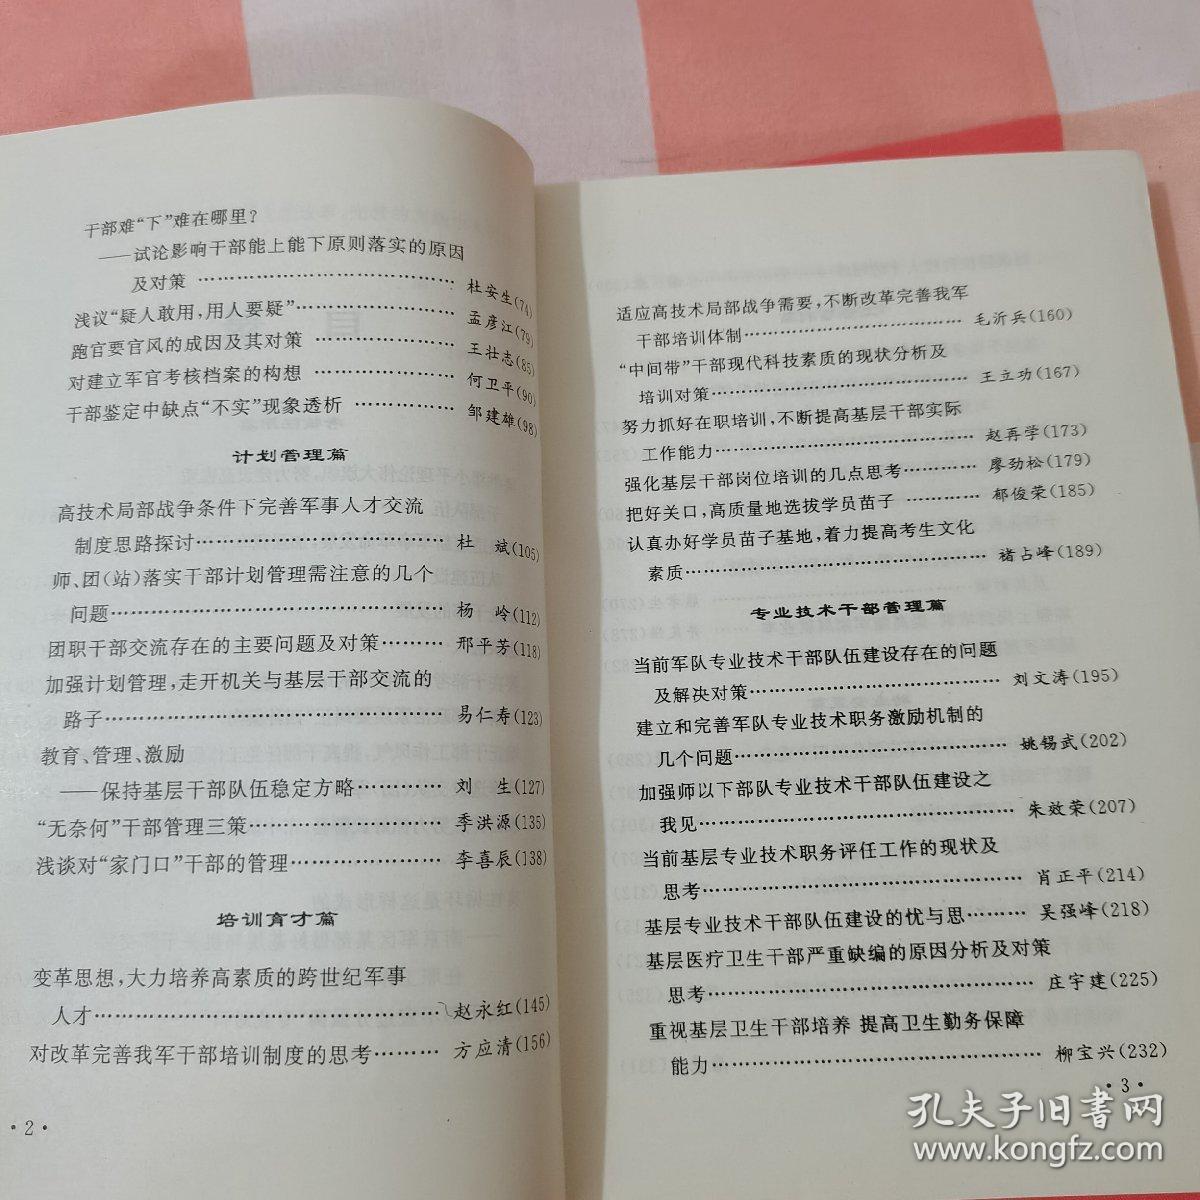 干部难“下”难在哪里?
——试论影响干部能上能下原则落实的原因
及对策 …………………………… 杜安生(74)
浅议“疑人敢用,用人要疑”……………… 孟彦江(79)
跑官要官风的成因及其对策 ……………… 王壮志(85)
对建立军官考核档案的构想 ……………… 何卫平(90)
干部鉴定中缺点“不实”现象透析 ………… 邹建雄(98)
计划管理篇
高技术局部战争条件下完善军事人才交流
制度思路探讨…………………………… 杜 斌(105)
师、团(站)落实干部计划管理需注意的几个
问题…………………………………… 杨 岭(112)
团职干部交流存在的主要问题及对策……… 邢平芳(118)
加强计划管理,走开机关与基层干部交流的
路子…………………………………… 易仁寿(123)
教育、管理、激励
——保持基层干部队伍稳定方略………… 刘 生(127)
“无奈何”干部管理三策…………………… 李洪源(135)
浅谈对“家门口”干部的管理……………… 李喜辰(138)
培训育才篇
变革思想,大力培养高素质的跨世纪军事
人才…………………………………… 赵永红(145)
对改革完善我军干部培训制度的思考……… 方应清(156)
· 2 ·
适应高技术局部战争需要,不断改革完善我军
干部培训体制………………………… 毛沂兵(160)
“中间带”干部现代科技素质的现状分析及
培训对策……………………………… 王立功(167)
努力抓好在职培训,不断提高基层干部实际
工作能力……………………………… 赵再学(173)
强化基层干部岗位培训的几点思考………… 廖劲松(179)
把好关口,高质量地选拔学员苗子………… 郁俊荣(185)
认真办好学员苗子基地,着力提高考生文化
素质…………………………………… 褚占峰(189)
专业技术干部管理篇
当前军队专业技术干部队伍建设存在的问题
及解决对策…………………………… 刘文涛(195)
建立和完善军队专业技术职务激励机制的
几个问题……………………………… 姚锡武(202)
加强师以下部队专业技术干部队伍建设之
我见…………………………………… 朱效荣(207)
当前基层专业技术职务评任工作的现状及
思考…………………………………… 肖正平(214)
基层专业技术干部队伍建设的忧与思……… 吴强峰(218)
基层医疗卫生干部严重缺编的原因分析及对策
思考…………………………………… 庄宇建(225)
重视基层卫生干部培养 提高卫生勤务保障
能力…………………………………… 柳宝兴(232)
· 3 ·
孔夫子旧书网
www.kongfz.com